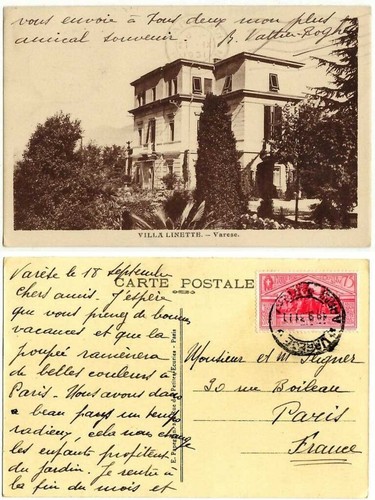 vous envoie à tous deux mon plus
amical souvenir.
VILLA LINETTE. - Varese.
CARTE POSTALE
Varèse le 18 septembre
Chers amis. J'espère
que vous prenez de bonnes
vacances et que la
poupée ramènera
de belles couleurs à
Paris. Nous avons dans
ce beau pays un temps
radieux, cela nous change
les enfants profitent
du jardin. Je rentre à
la fin du mois et
Monsieur et M
30 rue Boileau
Paris
France